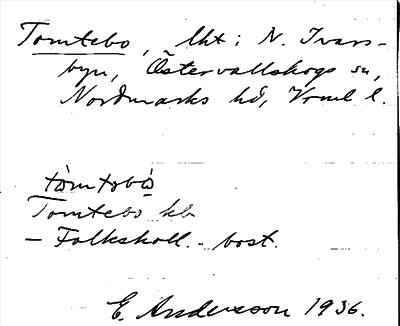 Tomtebo, lht i N. Ivars-
byn, Östervallskogs sn,
Nordmarks hd, Vrml l.
tòmtəbò
Tomtebo kb
– Folkskoll. – bost.
E. Andersson 1936.